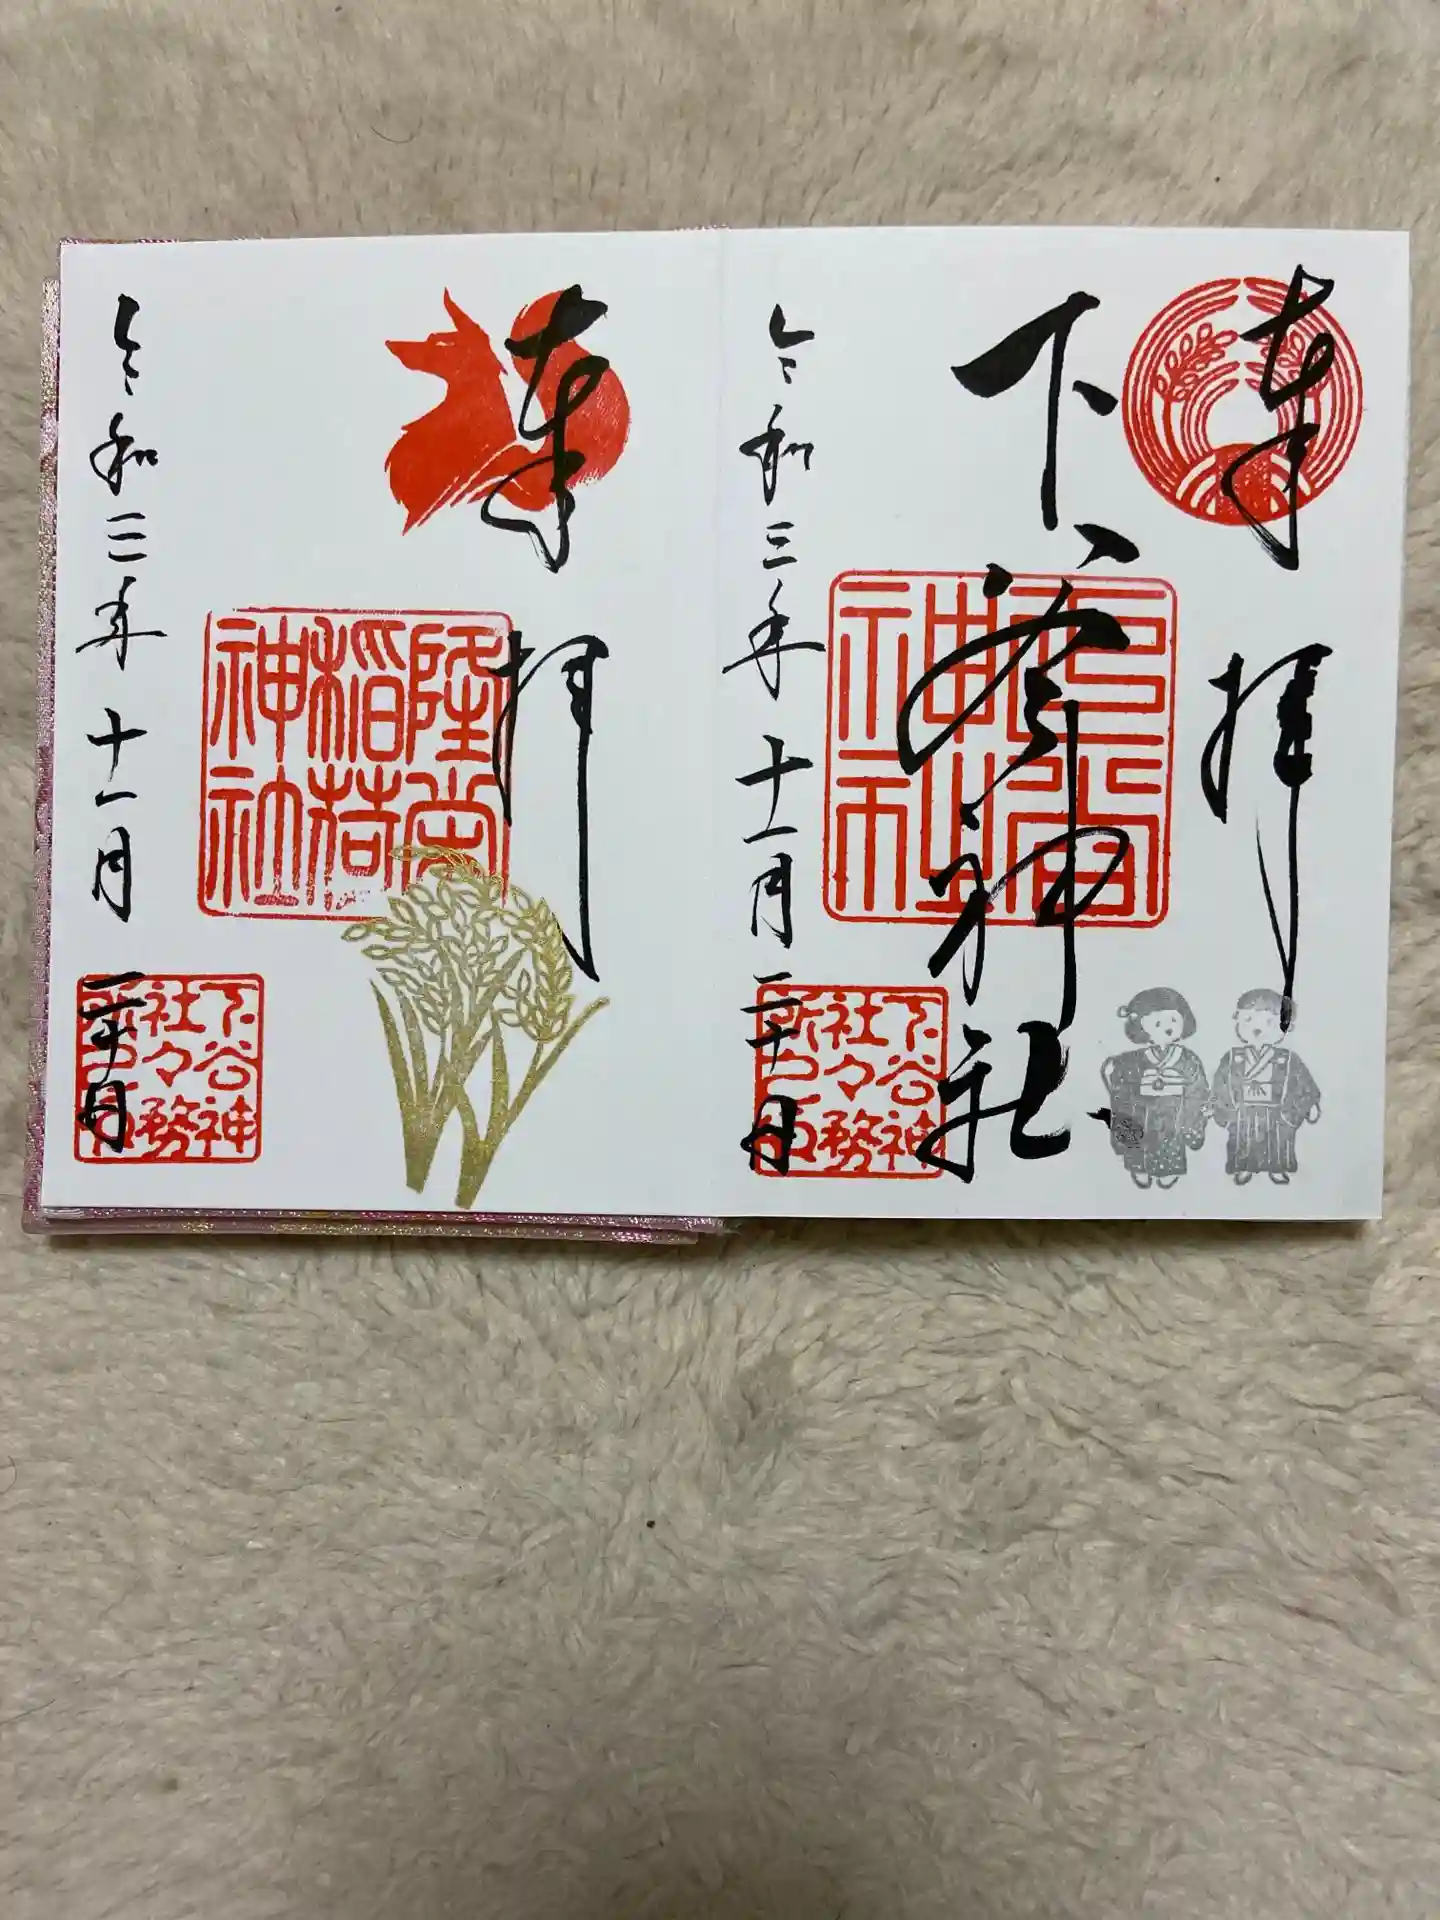 奉拝
下谷神社
令和三年十一月二十日
下谷神
社々務
所之印
奉拝
稲荷
神社
令和三年十一月二十日
下谷神
社々務
所之印